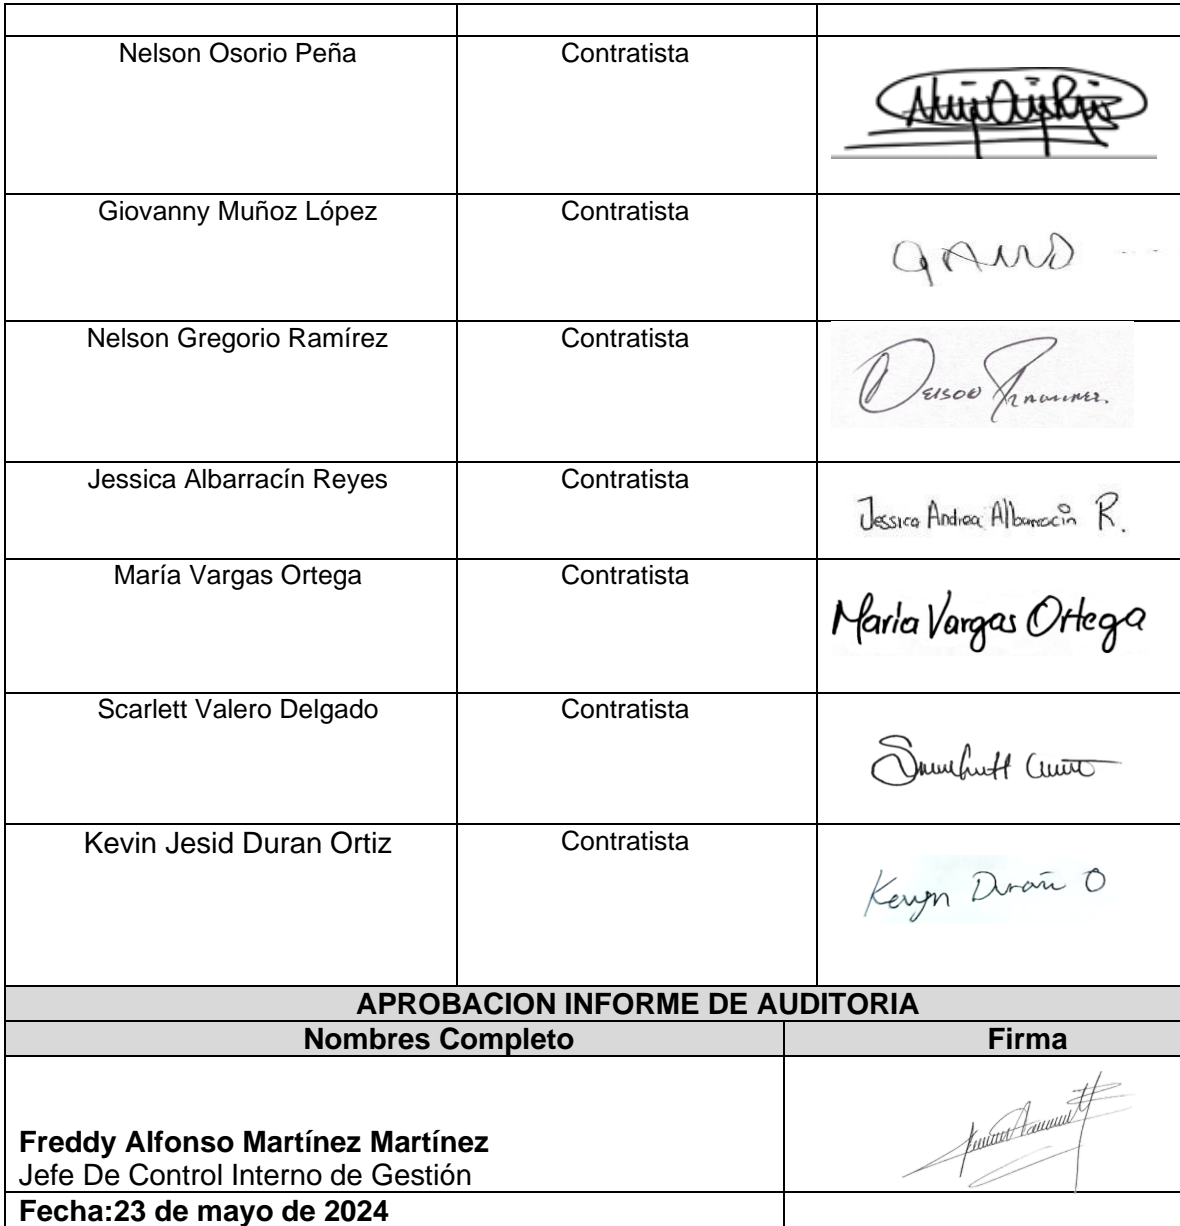 Nelson Osorio Peña Contratista
Giovanny Muñoz López Contratista
Nelson Gregorio Ramírez Contratista
Jessica Albarracín Reyes Contratista
Jessica Andrea Albarracín R.
María Vargas Ortega Contratista
Maria Vargas Ortega
Scarlett Valero Delgado Contratista
Kevin Jesid Duran Ortiz Contratista
APROBACION INFORME DE AUDITORIA
Nombres Completo Firma
Freddy Alfonso Martínez Martínez
Jefe De Control Interno de Gestión
Fecha:23 de mayo de 2024